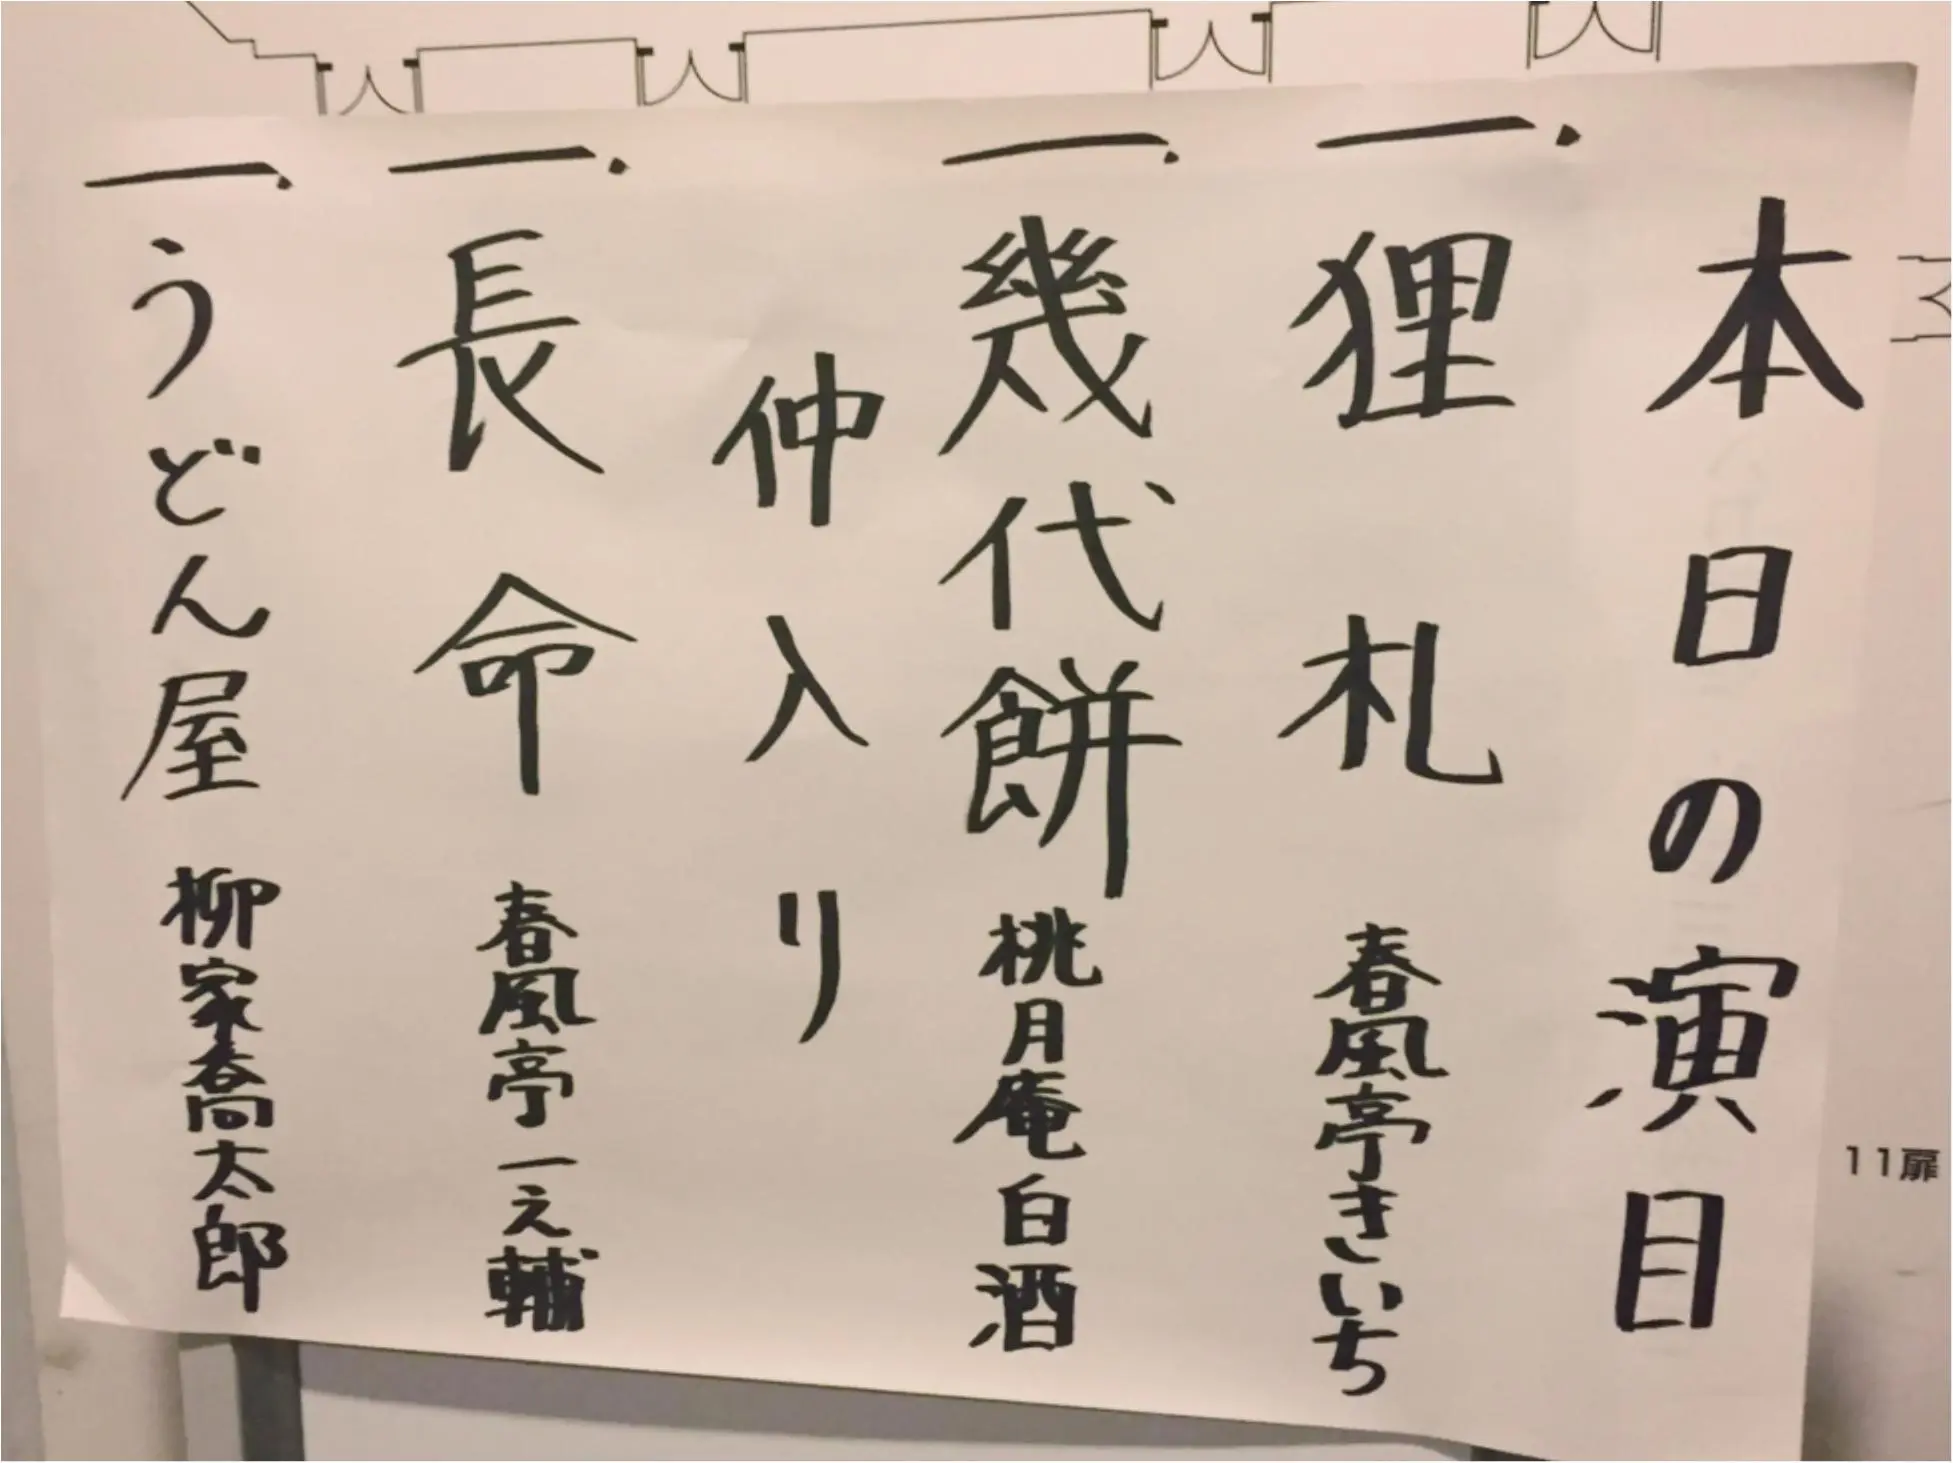 本日の演目
一.狸札 春風亭きいち
一.幾代餅 桃月庵白酒
仲入り
一.長命 春風亭一之輔
一.うどん屋 柳家喬太郎
11扉